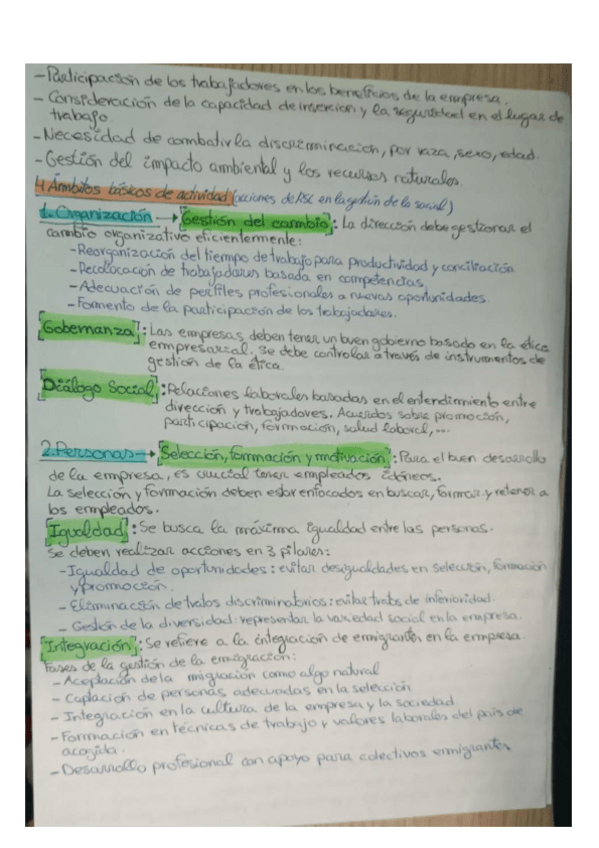 - Participación de los trabajadores en los beneficios de la empresa.
- Consideración de la capacidad de inserción y la seguridad en el lugar de
trabajo.
- Necesidad de combatir la discriminación, por raza, sexo, edad.
- Gestión del impacto ambiental y los recursos naturales
4. Ámbitos básicos de actividad (acciones de RSC en la gestión de lo social)
1. Organización → [Gestión del cambio]: La dirección debe gestionar el
cambio organizativo eficientemente:
- Reorganización del tiempo de trabajo para productividad y conciliación.
- Recolocación de trabajadores basada en competencias
- Adecuación de perfiles profesionales a nuevas oportunidades.
- Fomento de la participación de los trabajadores.
[Gobernanza]: Las empresas deben tener un buen gobierno basado en la ética
empresarial. Se debe controlar a través de instrumentos de
gestión de la ética.
[Diálogo Social]: Relaciones laborales basadas en el entendimiento entre
dirección y trabajadores. Acuerdos sobre promoción,
participación, formación, salud laboral,...
2. Personas → [Selección, formación y motivación]: Para el buen desarrollo
de la empresa, es crucial tener empleados idóneos.
La selección y formación deben estar enfocados en buscar, formar y retener a
los empleados.
[Igualdad]: Se busca la máxima igualdad entre las personas.
Se deben realizar acciones en 3 pilares:
- Igualdad de oportunidades: evitar desigualdades en selección, formación
y promoción.
- Eliminación de tratos discriminatorios: evitar tratos de inferioridad.
- Gestión de la diversidad: representar la variedad social en la empresa.
[Integración]: Se refiere a la integración de emigrantes en la empresa.
Fases de la gestión de la emigración:
- Aceptación de la migración como algo natural
- Captación de personas adecuadas en la selección
- Integración en la cultura de la empresa y la sociedad.
- Formación en técnicas de trabajo y valores laborales del país de
acogida.
- Desarrollo profesional con apoyo para colectivos emigrantes